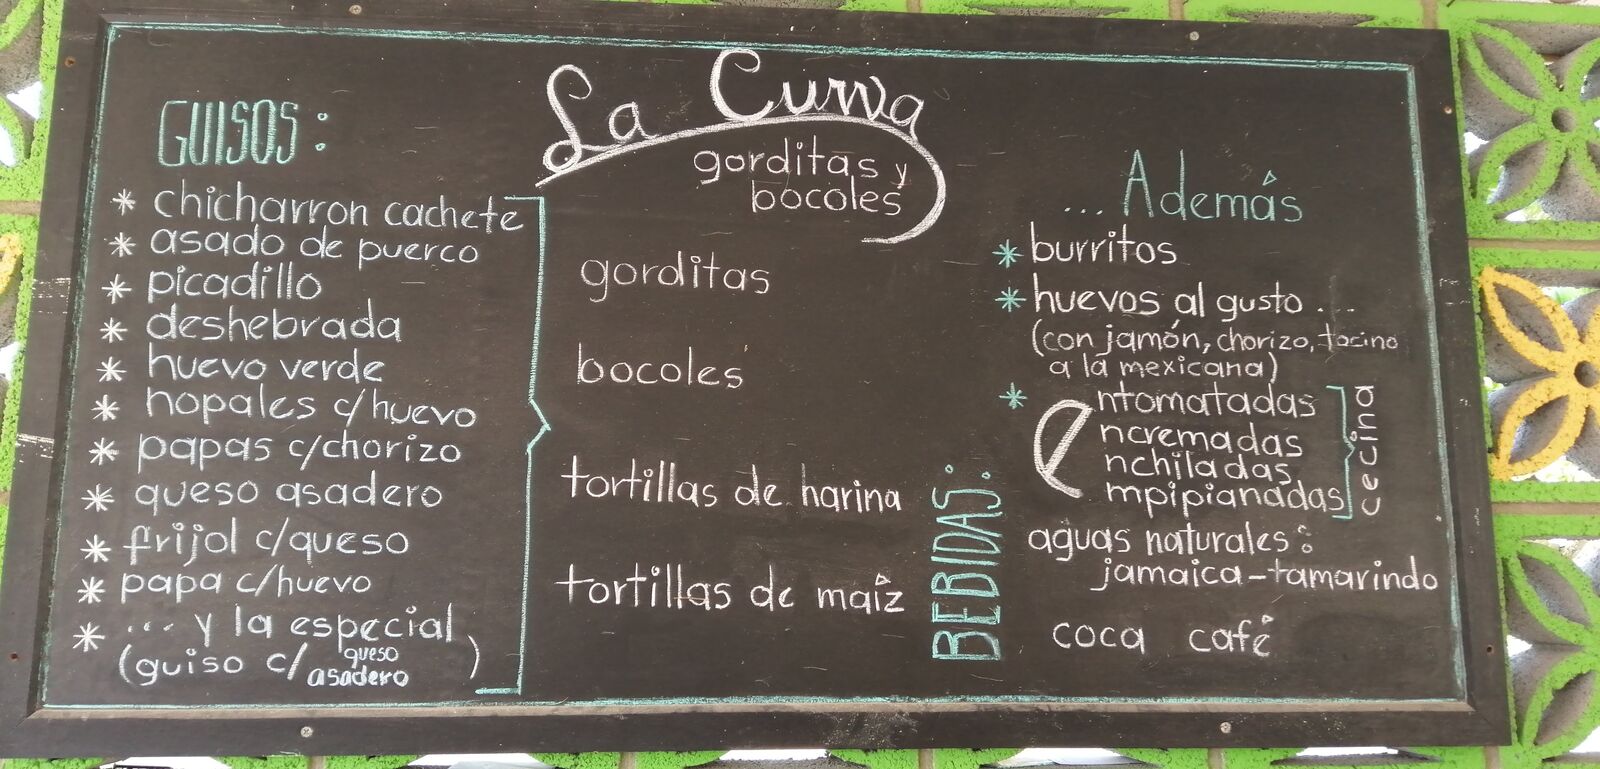 La Curva
gorditas y
bocoles
GUISOS:
* chicharron cachete
* asado de puerco
* picadillo
* deshebrada
* huevo verde
* nopales c/huevo
* papas c/chorizo
* queso asadero
* frijol c/queso
* papa c/huevo
* ... y la especial
(guiso c/ queso
asadero )
gorditas
bocoles
tortillas de harina
tortillas de maíz
... Además
* burritos
* huevos al gusto ...
(con jamón, chorizo, tocino
a la mexicana)
* entomatadas
encremadas
enchiladas
empipianadas
cecina
BEBIDAS:
aguas naturales:
jamaica-tamarindo
coca café